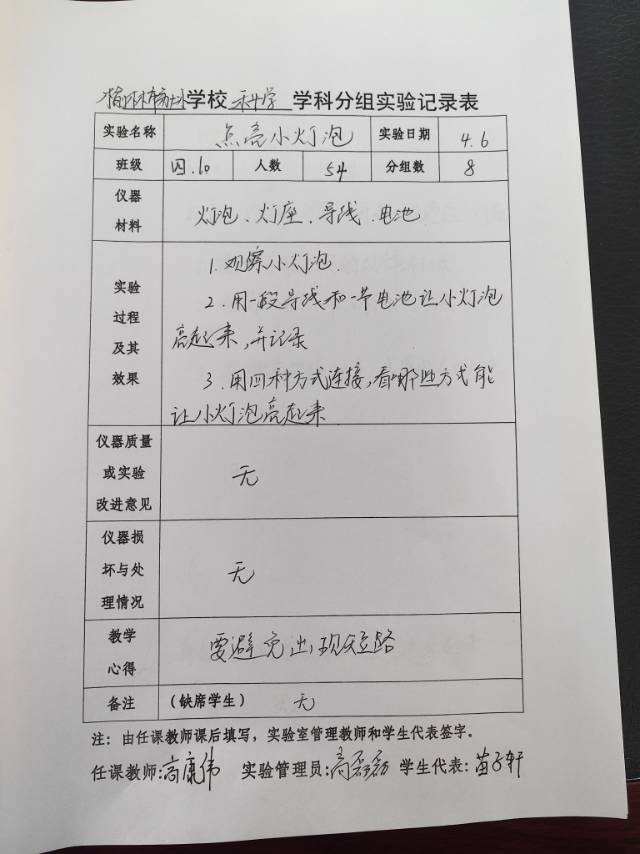 榆林市 学校 科学 学科分组实验记录表
实验名称 点亮小灯泡 实验日期 4.6
班级 四.10 人数 54 分组数 8
仪器
材料
灯泡、灯座、导线、电池
实验
过程
及其
效果
1. 观察小灯泡.
2. 用一段导线和一节电池让小灯泡
亮起来,并记录
3. 用四种方式连接,看哪些方式能
让小灯泡亮起来
仪器质量
或实验
改进意见
无
仪器损
坏与处
理情况
无
教学
心得
要避免出现短路
备注 (缺席学生) 无
注:由任课教师课后填写,实验室管理教师和学生代表签字。
任课教师:高康伟 实验管理员:高磊磊 学生代表:苗子轩